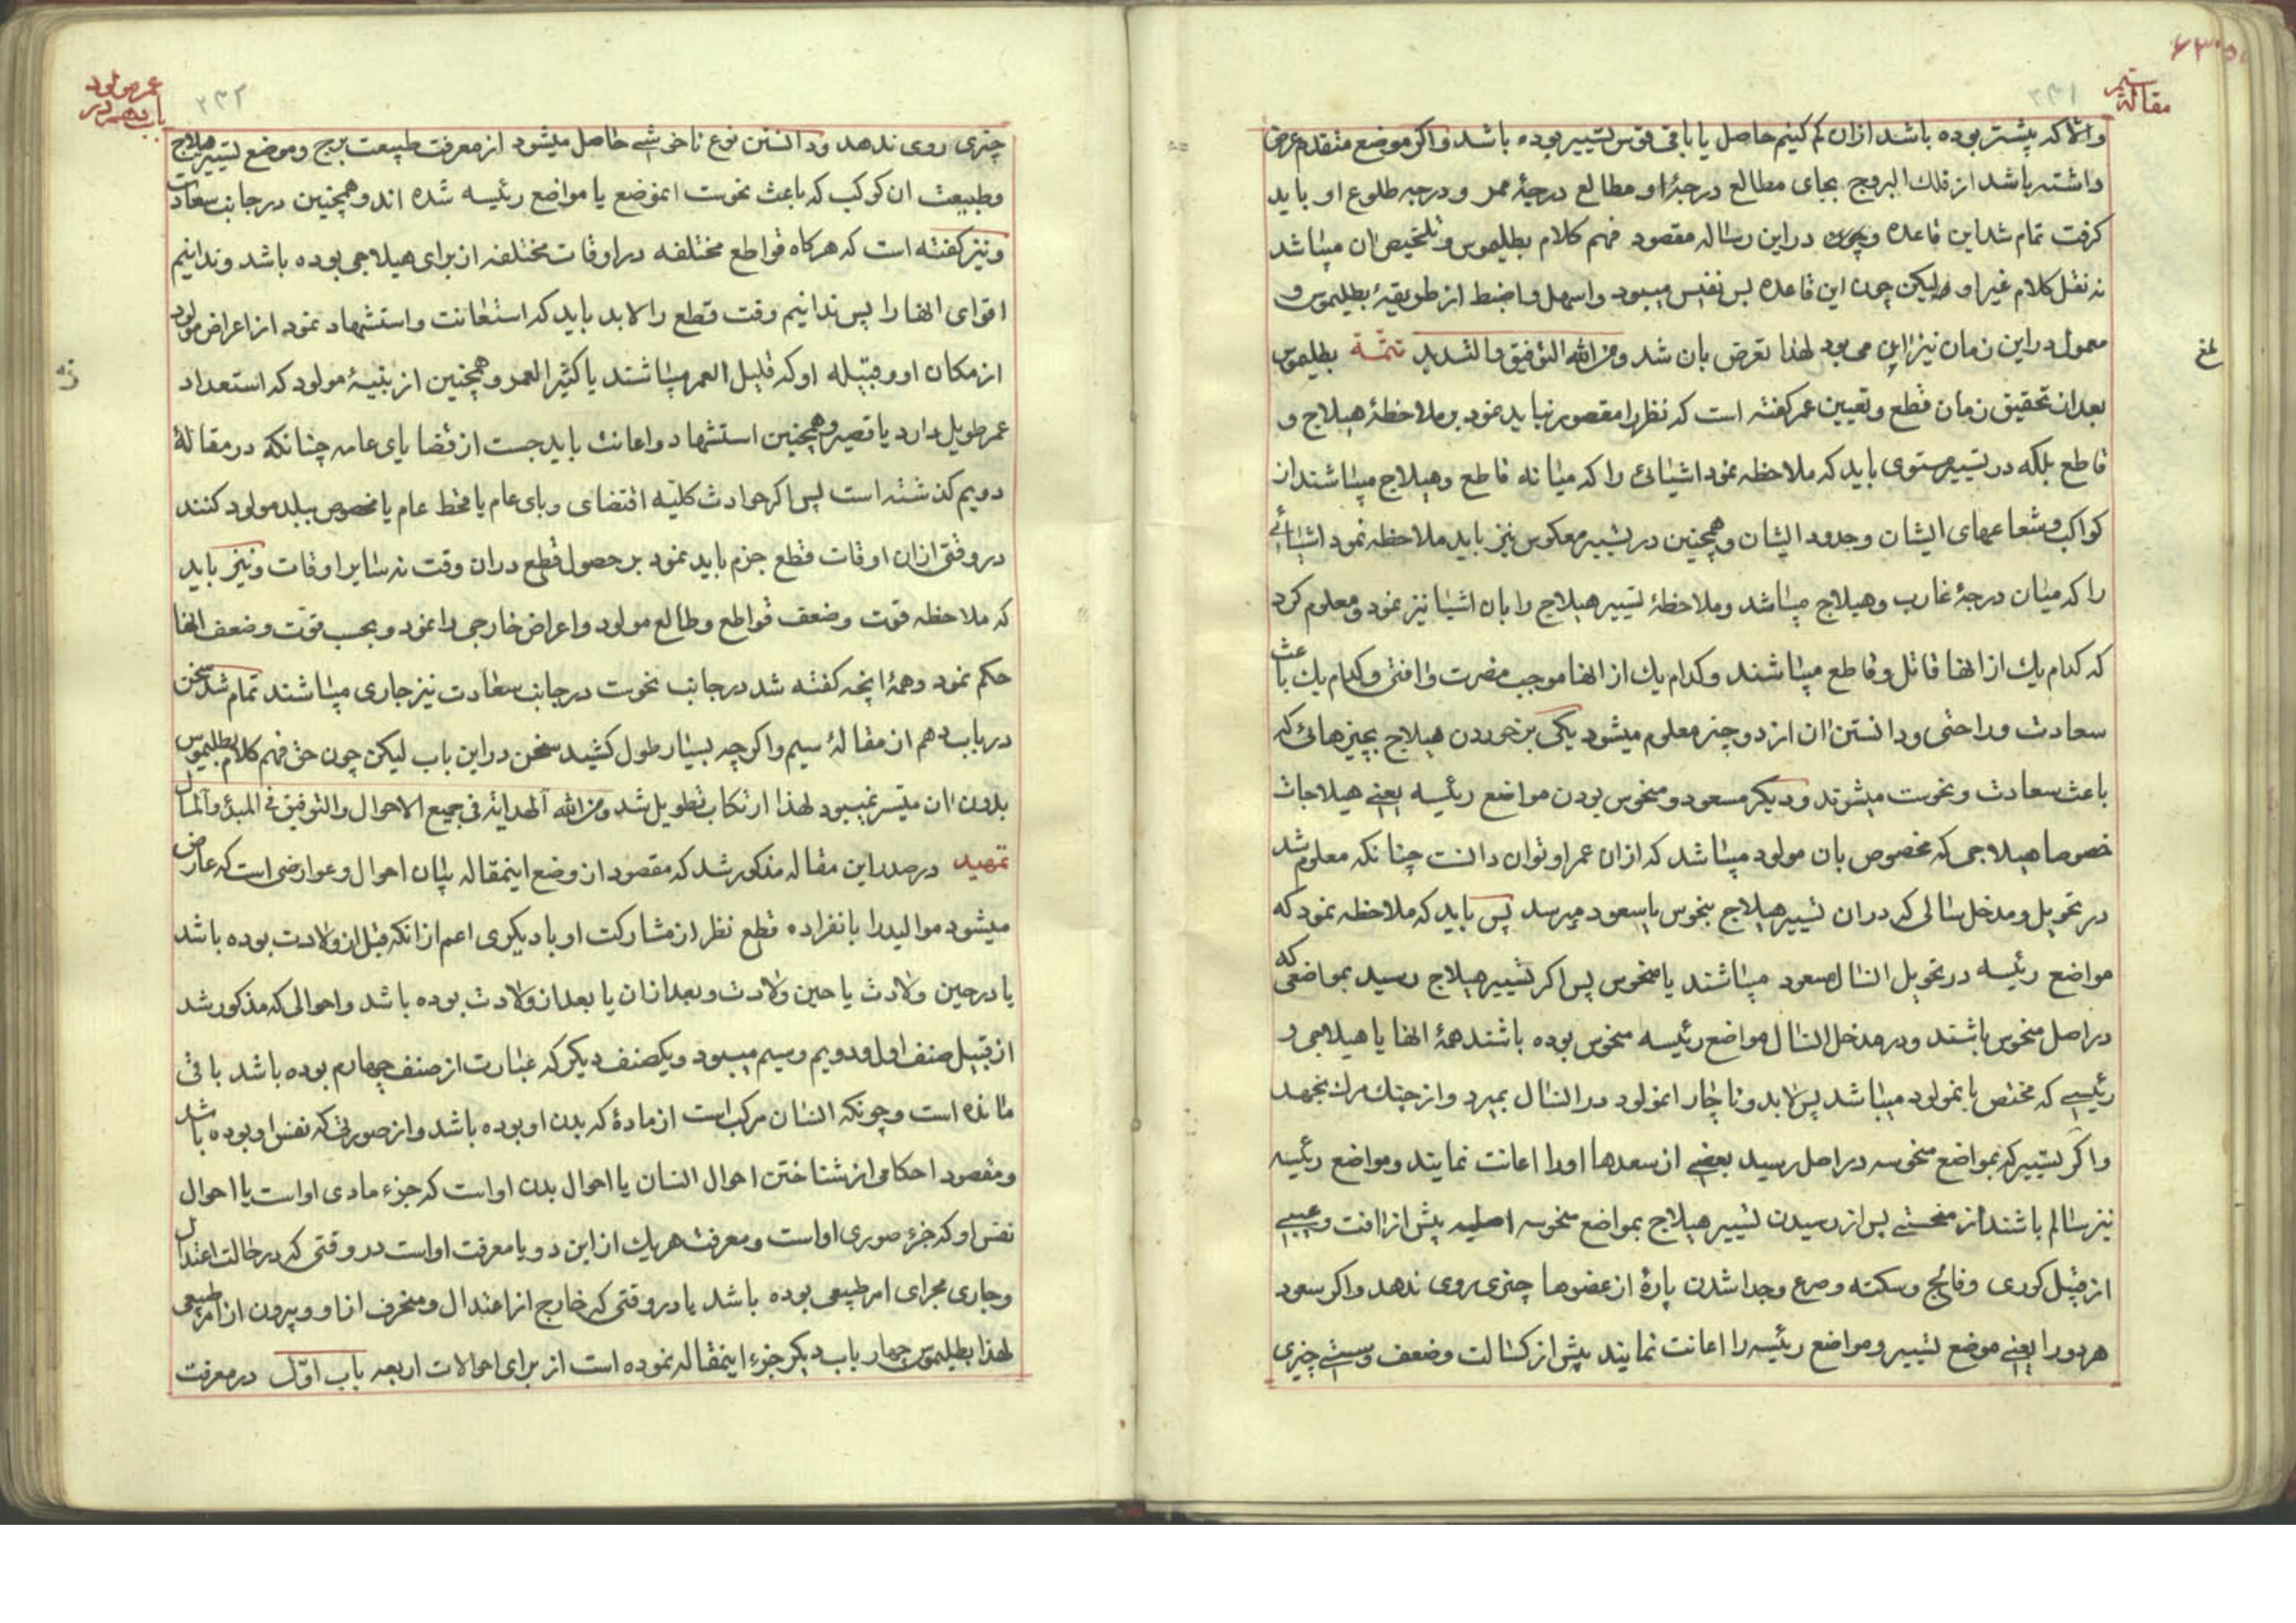 مقالهٔ سیم
۲۳۱
والا که پیشتر بوده باشد از ان کم کنیم حاصل یا باقی قوس تسییر بوده باشد و اکر موضع متقدم عرض
داشته باشد از فلك البروج بجای مطالع درجهٔ او مطالع درجهٔ ممر و درجه طلوع او باید
کرفت تمام شد این قاعده و چون در این رساله مقصود فهم کلام بطلیموس و تلخیص ان میباشد
نه نقل کلام غیر او ولیکن چون این قاعده بس نفیس میبود و اسهل و اضبط از طریقهٔ بطلیموس و
معمول در این زمان نیز این می بود لهذا تعرض بان شد و من الله التوفیق و التسدید تتمّة بطلیموس
بعد از تحقیق زمان قطع و تعیین عمر کفته است که نظر را مقصور نباید نمود بر ملاحظهٔ هیلاج و
قاطع بلکه در تسییر مستوی باید که ملاحظه نمود اشیائی را که میانه قاطع و هیلاج میباشند از
کواکب و شعاعهای ایشان و حدود ایشان و همچنین در تسییر معکوس نیز باید ملاحظه نمود اشیائی
را که میان درجهٔ غارب و هیلاج میباشد و ملاحظهٔ تسییر هیلاج را بان اشیا نیز نمود و معلوم کرد
که کدام یك از انها قاتل و قاطع میباشند و کدام یك از انها موجب مضرت و افتی و کدام یك باعث
سعادت و راحتی و دانستن ان از دو چیز معلوم میشود یکی بر خوردن هیلاج بچیزهائی که
باعث سعادت و نحوست میشوند و دیکر مسعود و منحوس بودن مواضع رئیسه یعنی هیلاجات
خصوصا هیلاجی که مخصوص بان مولود میباشد که ازان عمر او توان دانست چنانکه معلوم شد
در تحویل و مدخل سالی که دران تسییر هیلاج بنحوس یا سعود میرسد پس باید که ملاحظه نمود که
مواضع رئیسه در تحویل انسال مسعود میباشند یا منحوس پس اکر تسییر هیلاج رسید بمواضعی که
در اصل منحوس باشند و در مدخل انسال مواضع رئیسه منحوس بوده باشند همهٔ انها یا هیلاجی و
رئیسی که مختص بانمولود میباشد پس لابد و ناچار انمولود در انسال بمیرد و از چنك مرك نجهد
و اکر تسییر که بمواضع منحوسه در اصل رسید بعضی از سعدها اورا اعانت نمایند و مواضع رئیسه
نیز سالم باشند از منحسی پس از رسیدن تسییر هیلاج بمواضع منحوسه اصلیه بیش از افت و عیبی
از قبیل کوری و فالج و سکته و صرع و جدا شدن پارهٔ از عضوها چیزی روی ندهد و اکر سعود
هر دو را یعنی موضع تسییر و مواضع رئیسه را اعانت نمایند بیش از کسالت و ضعف و سستی چیزی
عمر مولود
باب دهم در
۲۳۲
چیزی روی ندهد و دانستن نوع ناخوشی حاصل میشود از معرفت طبیعت برج و موضع تسییر هیلاج
و طبیعت ان کوکب که باعث نحوست انموضع یا مواضع رئیسه شده اند و همچنین در جانب سعادت
و نیز کفته است که هرکاه قواطع مختلفه در اوقات مختلفه از برای هیلاجی بوده باشد و ندانیم
اقوای انها را پس ندانیم وقت قطع را لابد باید که استعانت و استشهاد نمود از اعراض مولود
از مکان او و قبیله او که قلیل العمر میباشند یا کثیر العمر و همچنین از بنیهٔ مولود که استعداد
عمر طویل دارد یا قصیر و همچنین استشهاد و اعانت باید جست از قضایای عامه چنانکه در مقالهٔ
دویم کذشته است پس اکر حوادث کلیه اقتضای وبای عام یا قحط عام یا مخصوص ببلد مولود کنند
در وقتی ازان اوقات قطع جزم باید نمود بر حصول قطع دران وقت نه سایر اوقات و نیز باید
که ملاحظه قوت و ضعف قواطع و طالع مولود و اعراض خارجی را نمود و بحسب قوت و ضعف انها
حکم نمود و همهٔ انچه کفته شد در جانب نحوست در جانب سعادت نیز جاری میباشند تمام شد سخن
در باب دهم از مقالهٔ سیم و اکرچه بسیار طول کشید سخن در این باب لیکن چون حق فهم کلام بطلیموس
بدون ان میّسر نمیبود لهذا ارتکاب تطویل شد و من الله الهدایة فی جمیع الاحوال و التوفیق فی المبدٔ و المآل
تمهید در صدر این مقاله مذکور شد که مقصود از وضع اینمقاله بیان احوال و عوارضی است که عارض
میشود موالید را بانفراده قطع نظر از مشارکت او با دیکری اعم از انکه قبل از ولادت بوده باشد
یا در حین ولادت یا حین ولادت و بعد ازان یا بعد از ولادت بوده باشد و احوالی که مذکور شد
از قبیل صنف اول و دویم و سیم میبود و یکصنف دیکر که عبارت از صنف چهارم بوده باشد باقی
مانده است و چونکه انسان مرکب است از مادهٔ که بدن او بوده باشد و از صورتی که نفس او بوده باشد
و مقصود احکامی از شناختن احوال انسان یا احوال بدن او است که جزء مادی او است یا احوال
نفس او که جزء صوری او است و معرفت هر یك از این دو یا معرفت او است در وقتی که در حالت اعتدال
و جاری مجرای امر طبیعی بوده باشد یا در وقتی که خارج از اعتدال و منحرف از او و بیرون از امر طبیعی
لهذا بطلیموس چهار باب دیکر جزء اینمقاله نموده است از برای احوالات اربعه باب اوّل در معرفت